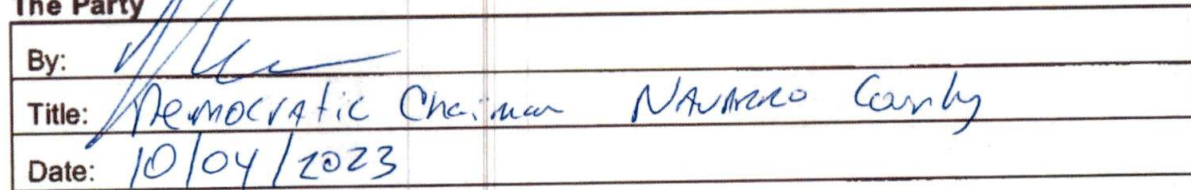 The Party
By:
Title: Democratic Chairman Navarro County
Date: 10/04/2023